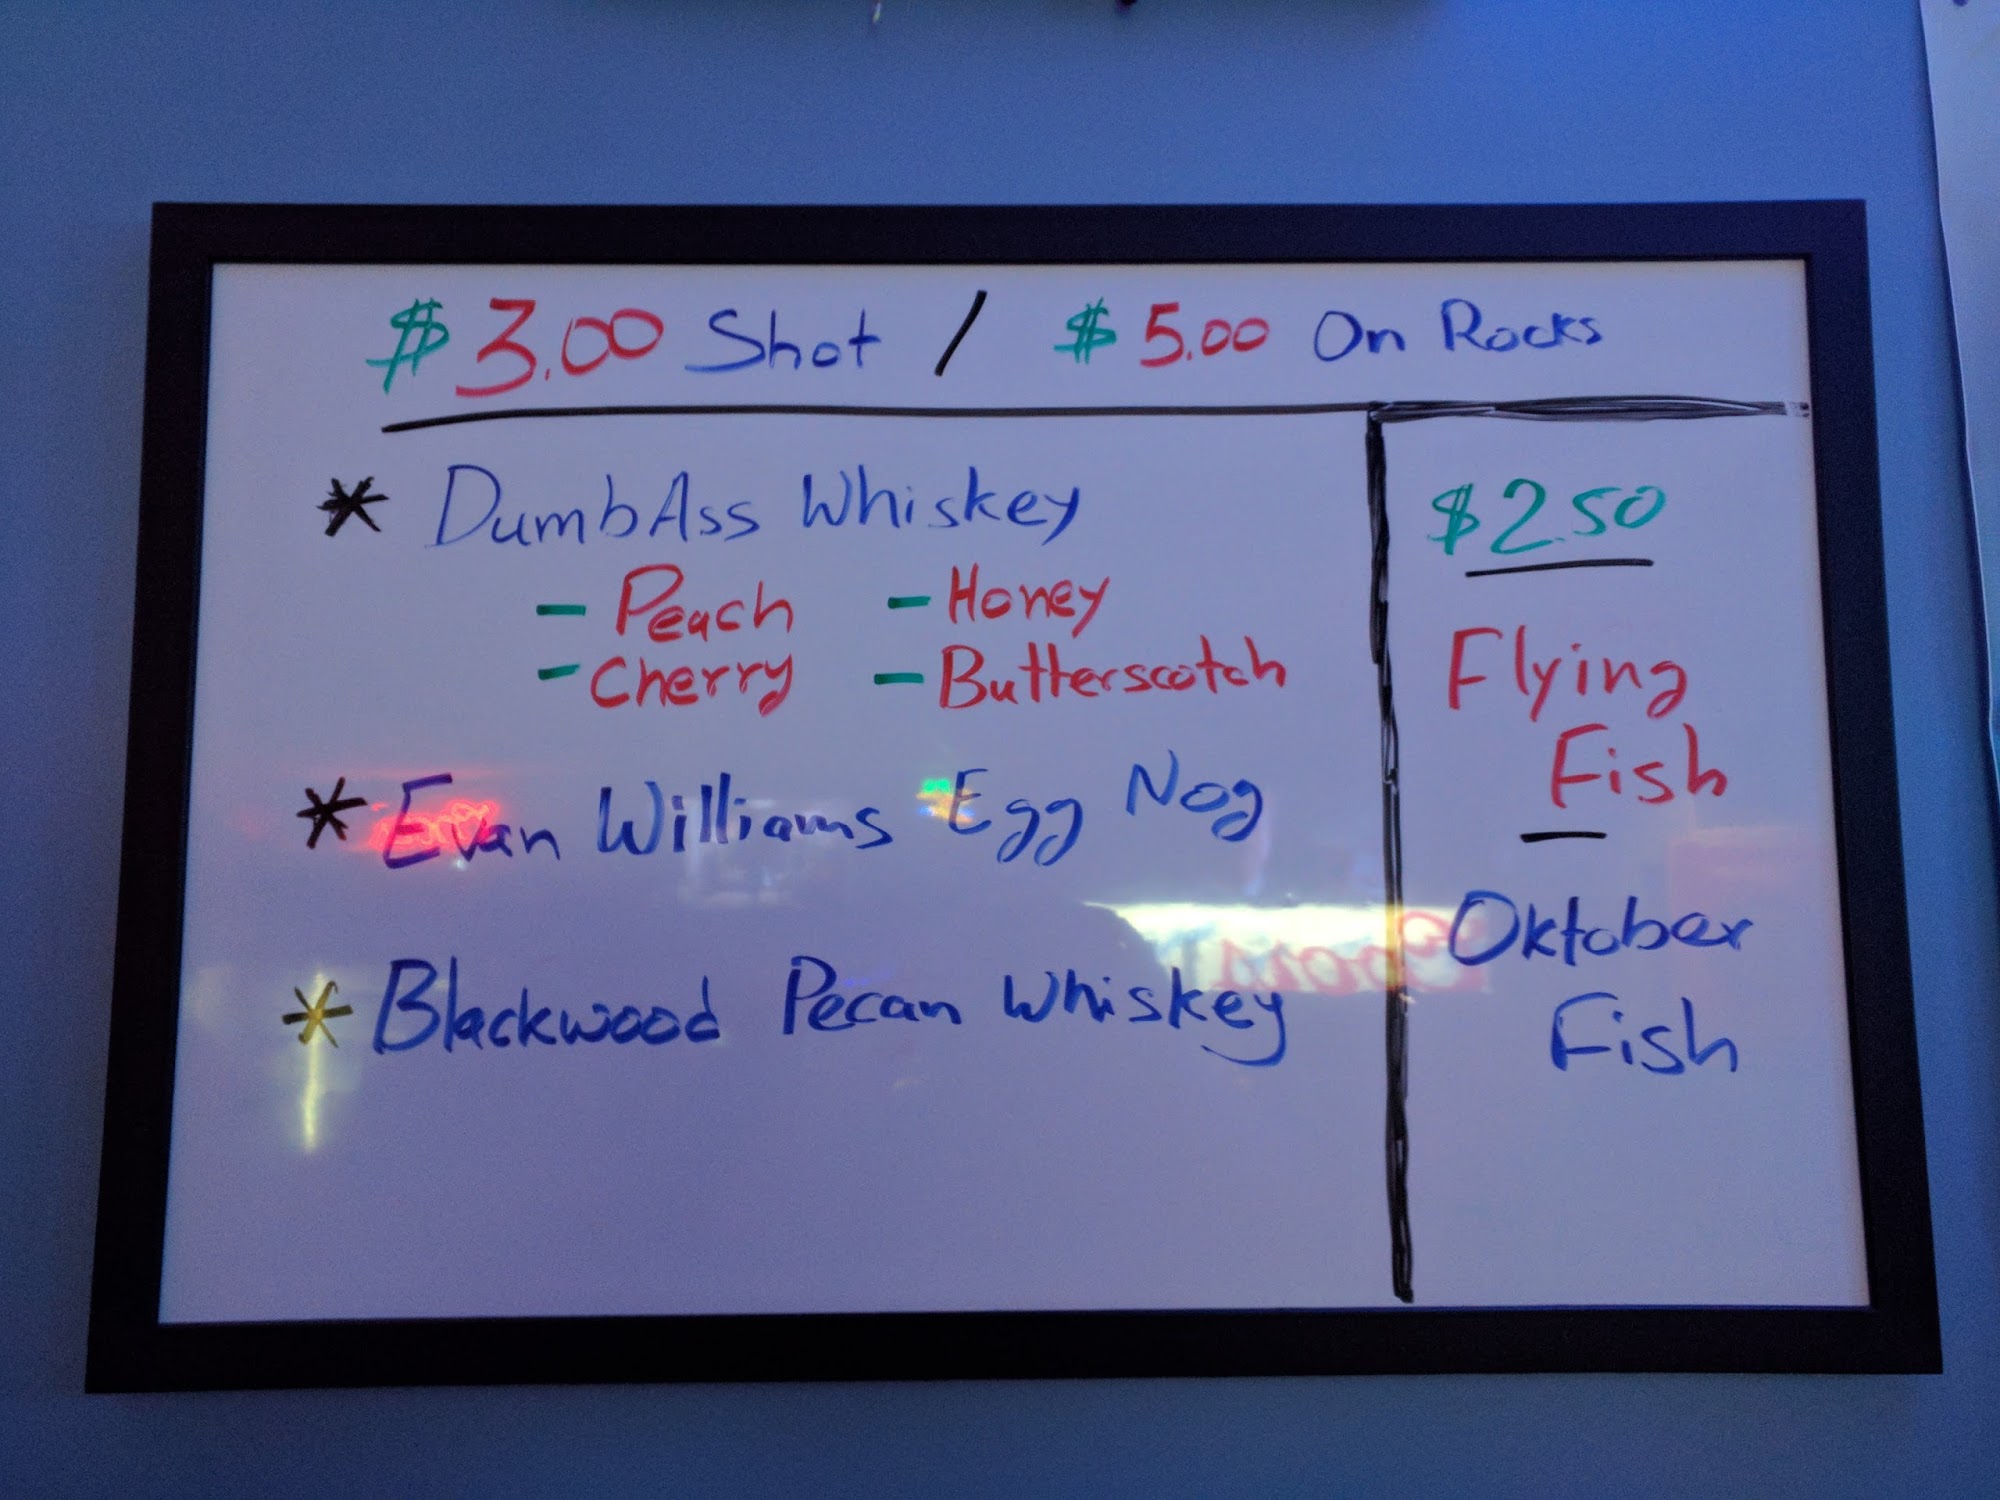 $3.00 Shot / $5.00 On Rocks
* DumbAss Whiskey
- Peach - Honey
- Cherry - Butterscotch
* Evan Williams Egg Nog
* Blackwood Pecan Whiskey
$2.50
Flying
Fish
Oktober
Fish